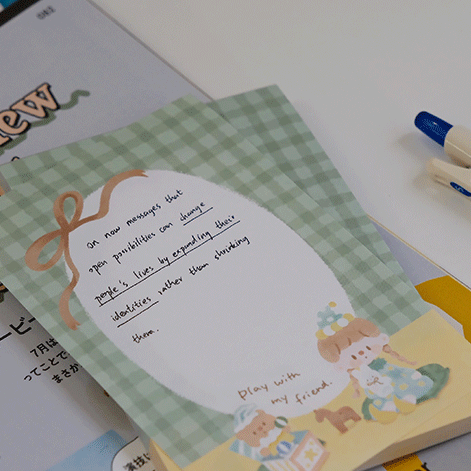 080
On how messages that
open possibilities can change
people's lives by expanding their
identities rather than shrinking
them.
play with
my friend.
7月は
ってことで
まさか
演技に